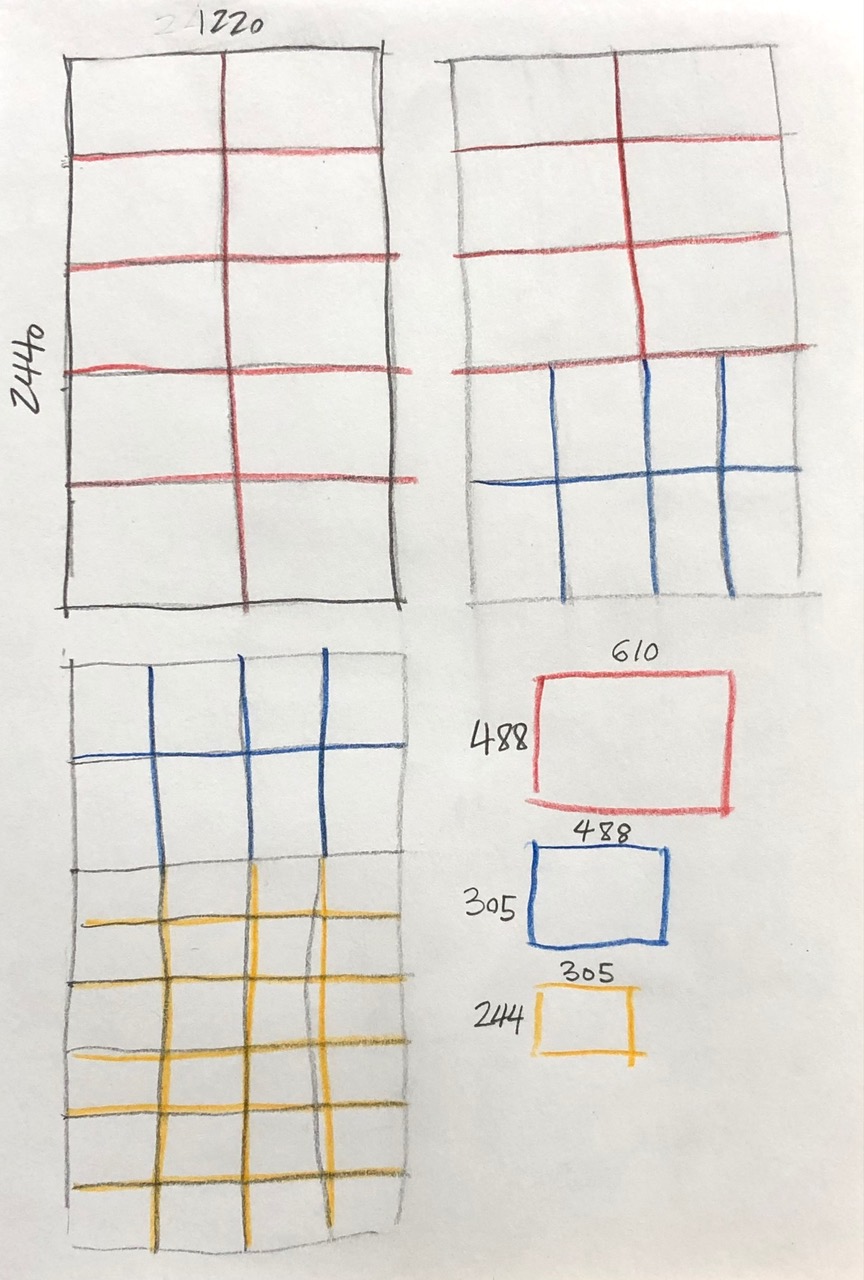 1220
2440
610
488
488
305
305
244